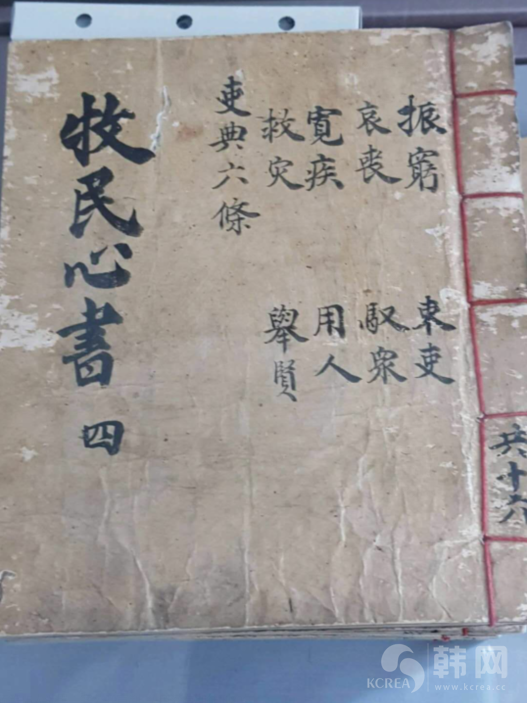 牧民心書 四
振窮
哀喪
寬疾
救灾
吏典六條
束吏
馭衆
用人
舉賢
共十六
韩网
KCREA www.kcrea.cc